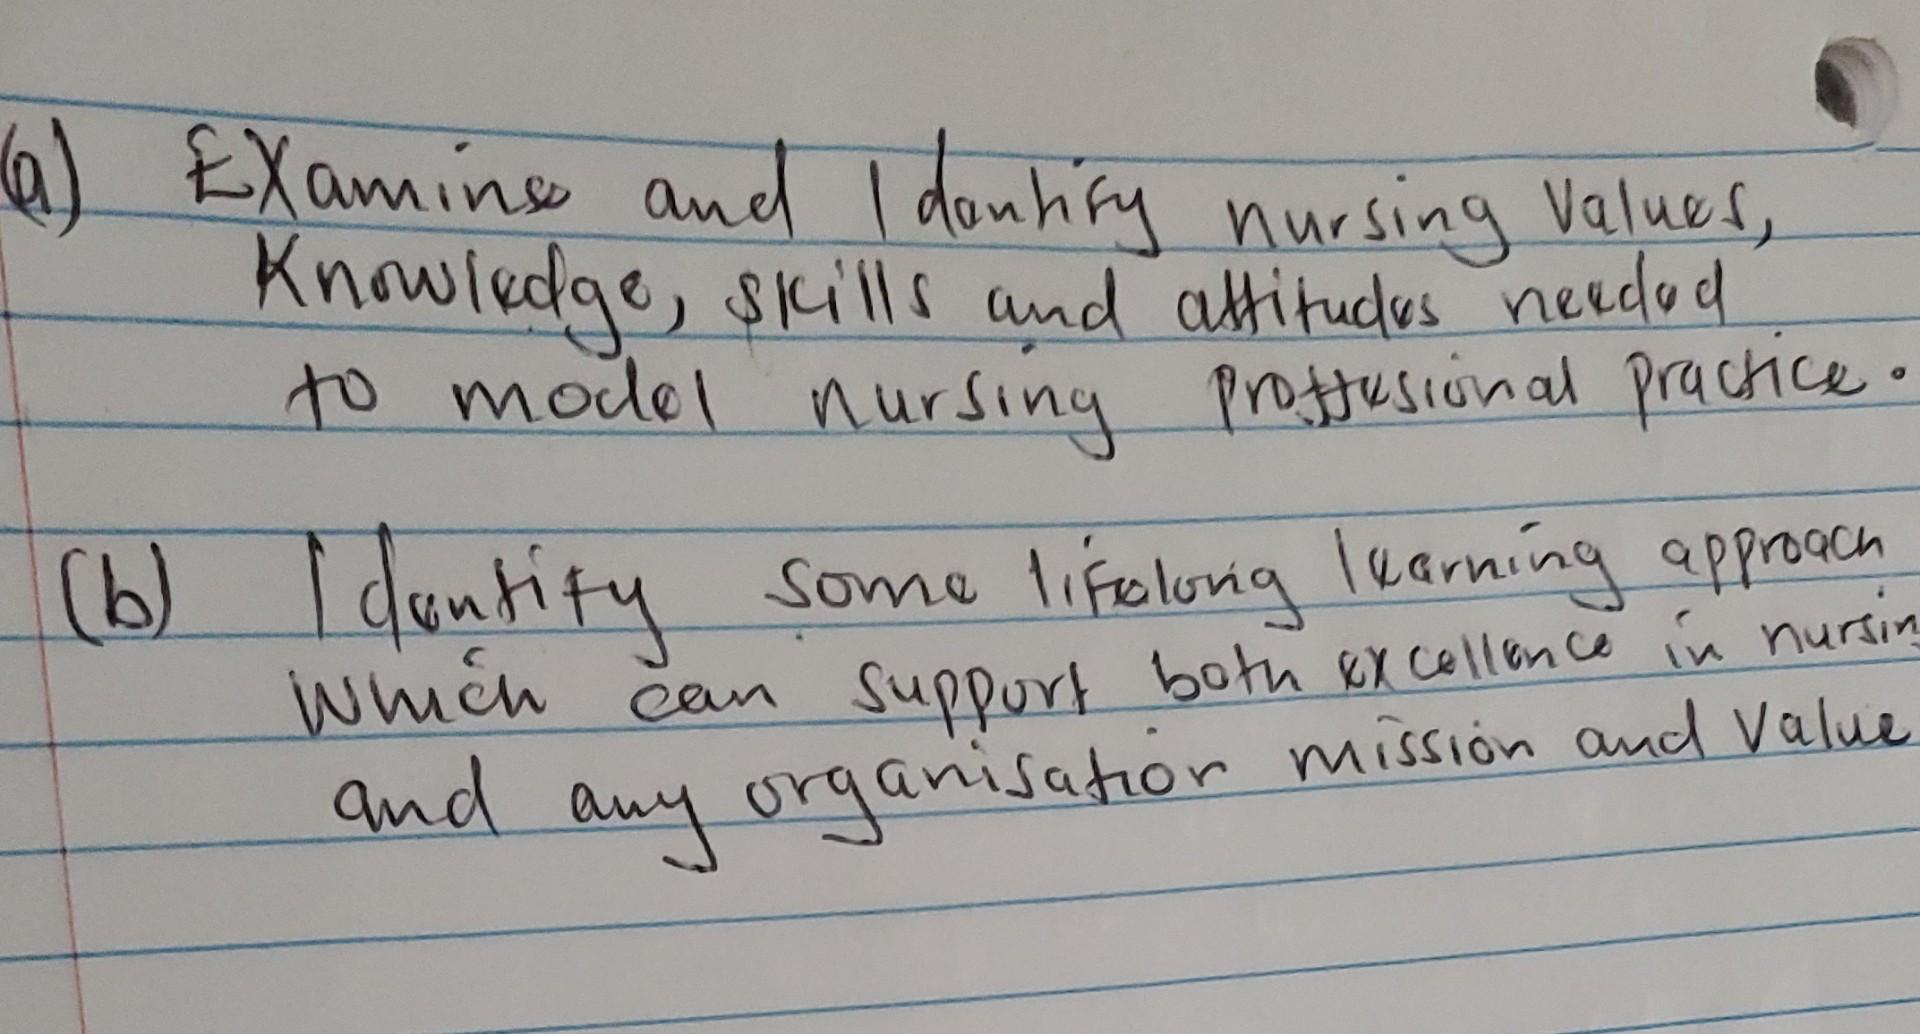 (a) Examine and Identify nursing values,
Knowledge, skills and attitudes needed
to model nursing proffesional practice.
(b) Identify some lifelong learning approach
which can support both excellence in nursing
and any organisation mission and value